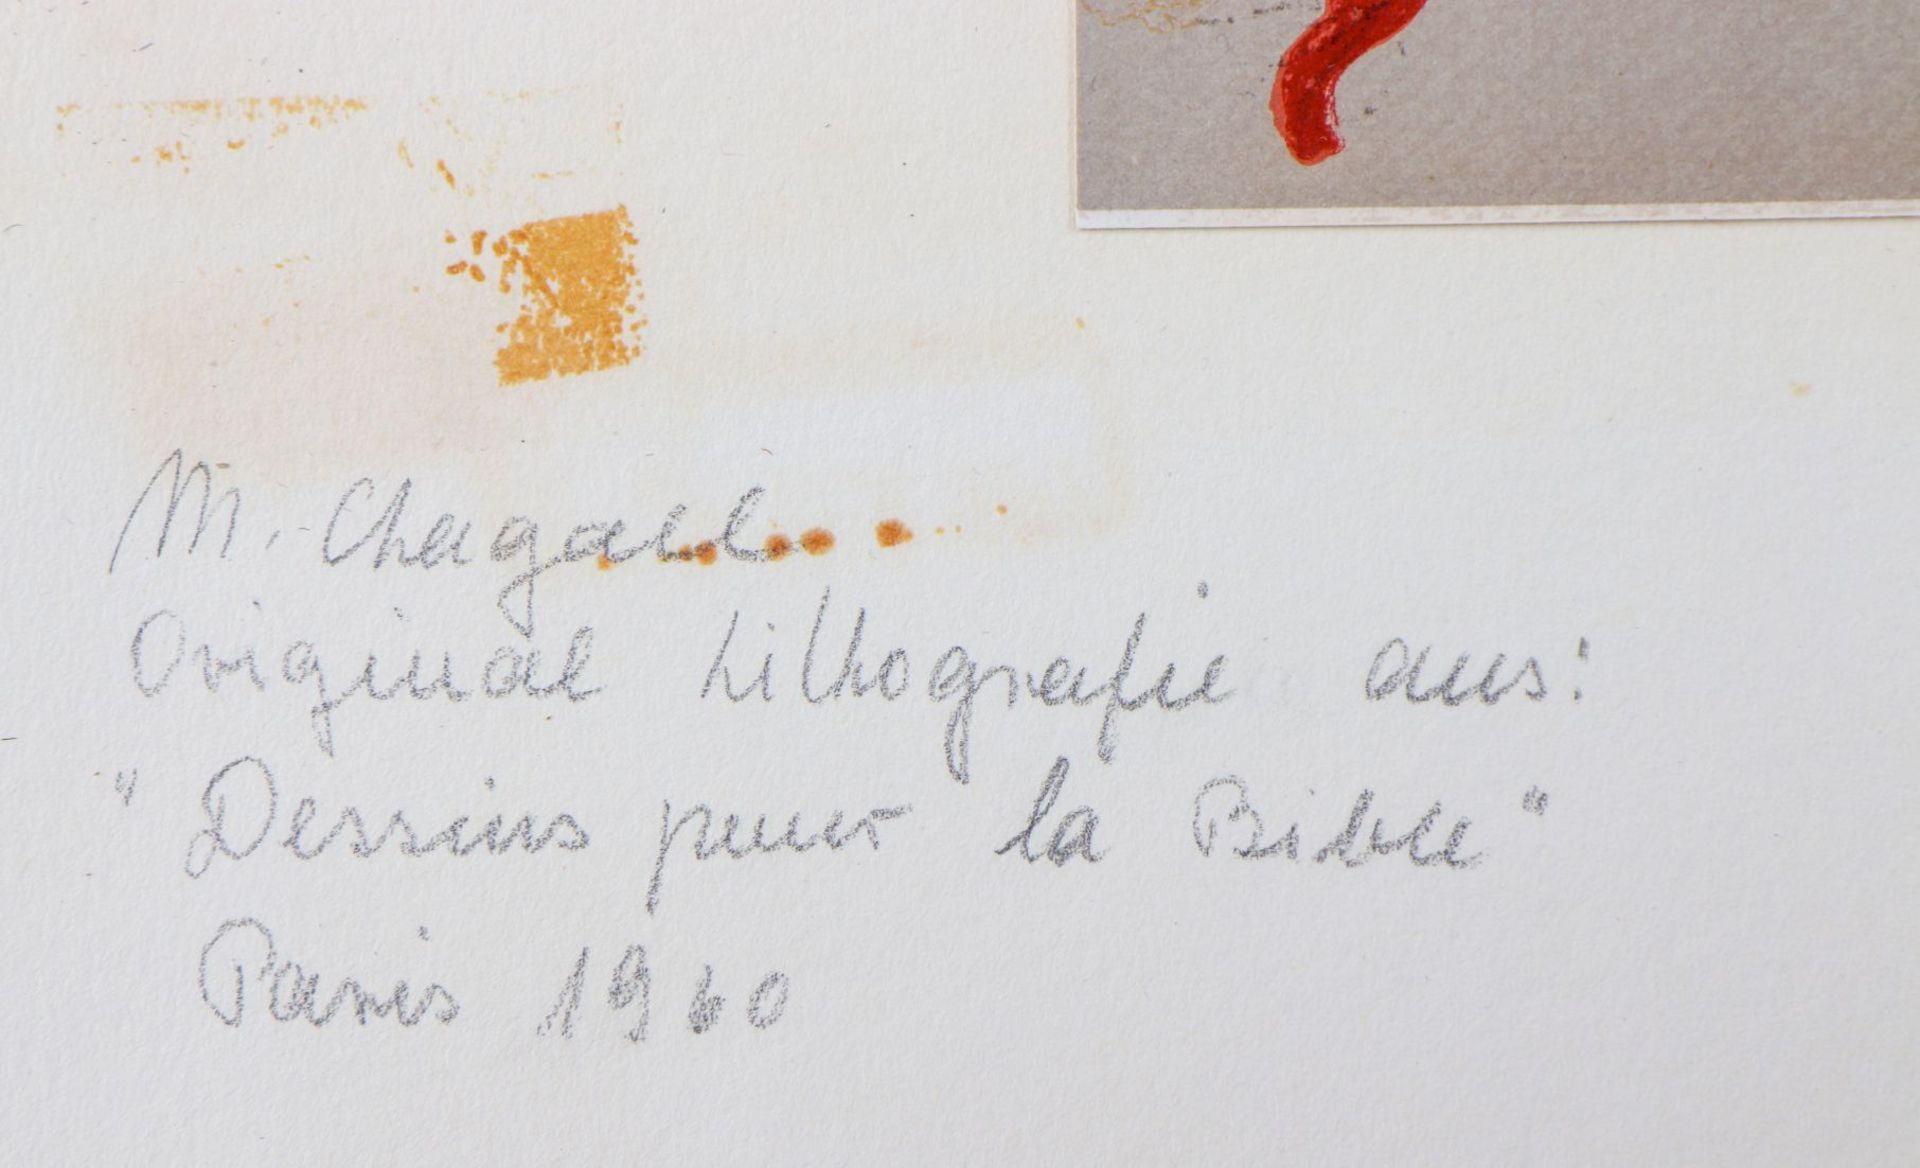 M. Chagall
Original Lithografie aus:
"Dessins pour la Bible"
Paris 1960